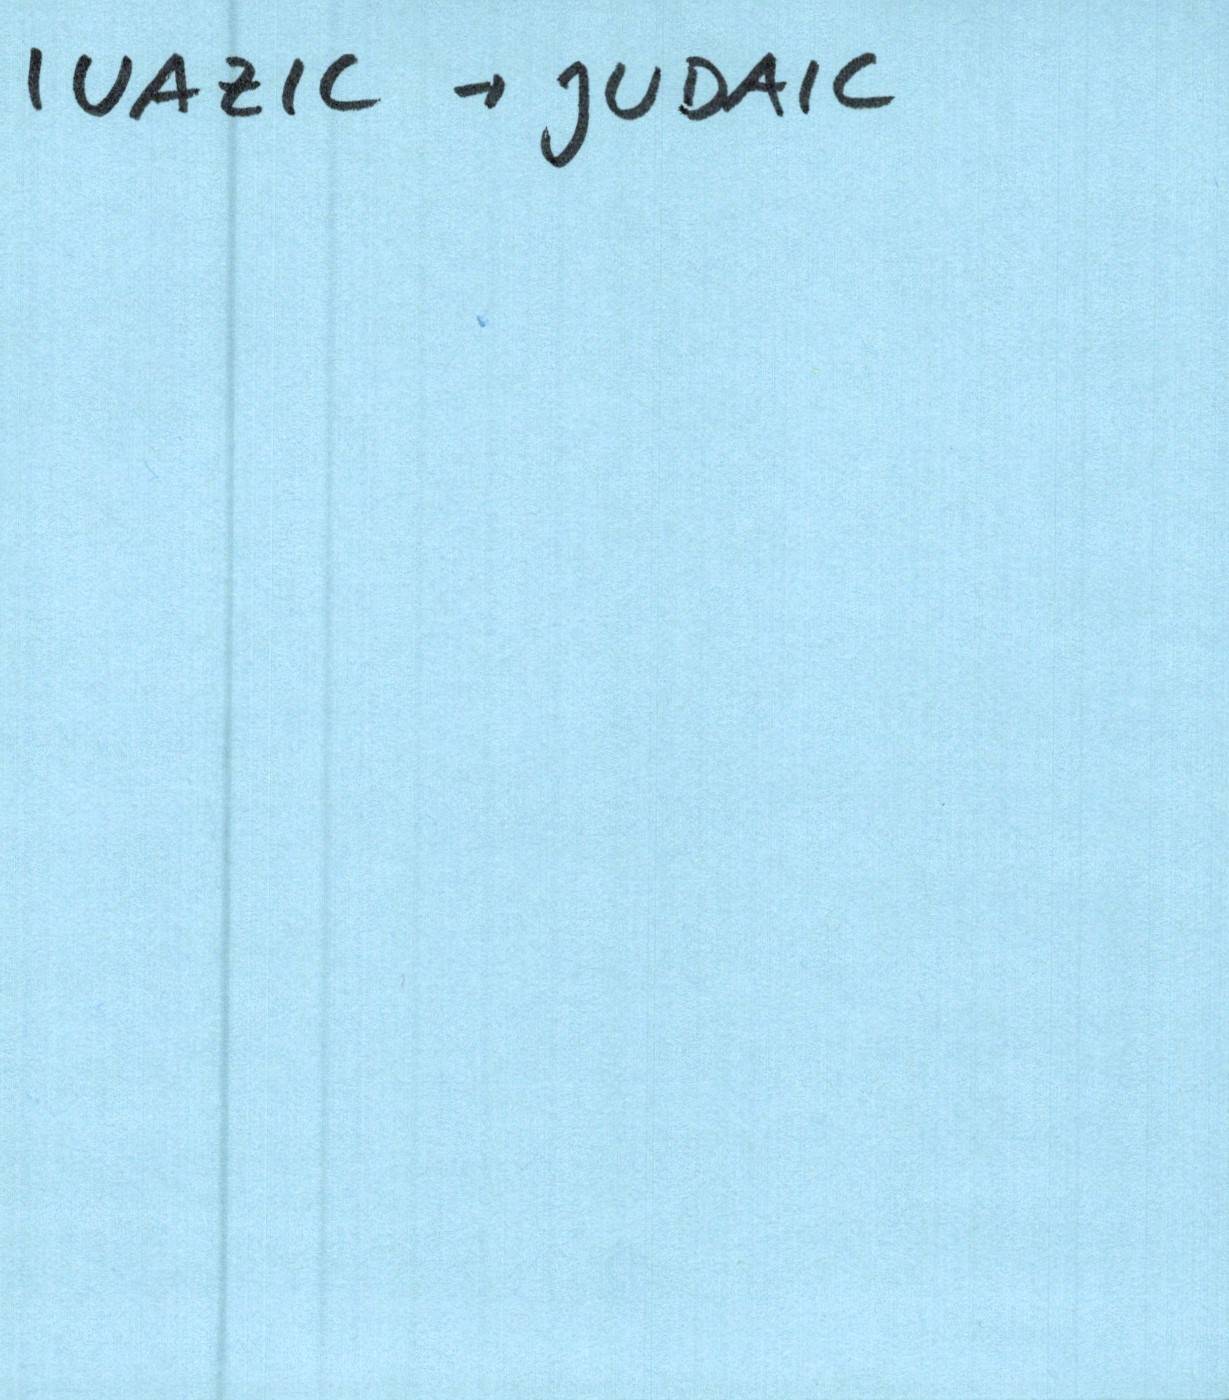 IUAZIC → JUDAIC